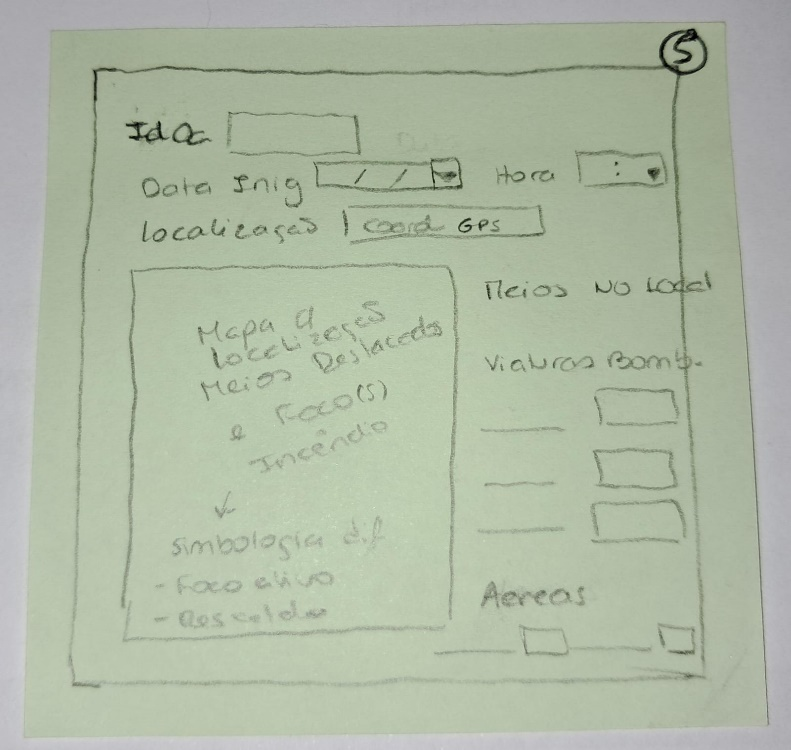 5
Id Oc
Data Inig / / Hora :
Localização Coord GPS
Mapa c/
Localização
Meios Deslocados
e Foco(s)
Incêndio
Simbologia dif
- Foco ativo
- Rescaldo
Meios NO Local
Viaturas Bomb.
Aereas